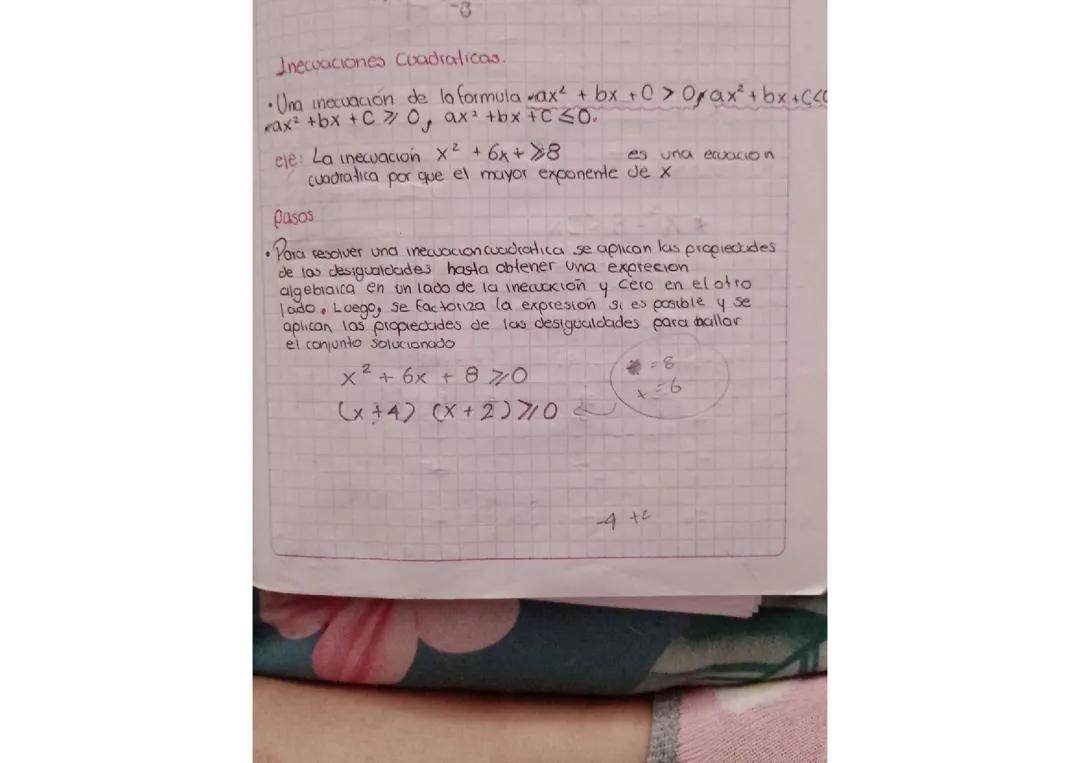 -3
Inecuaciones Cuadraticas.
• Una inecuación de la formula ax² + bx + C > 0, ax² + bx + C < 0
ax² + bx + C ⩾ 0, ax² + bx + C ≤ 0.
eje: La inecuación x² + 6x + ⩾ 8 es una ecuacion
cuadratica por que el mayor exponente de x
Pasos
• Para resolver una inecuacion cuadratica se aplican las propiedades
de las desigualdades hasta obtener una exprecion
algebraica en un lado de la inecuación y cero en el otro
lado. Luego, se factoriza la expresión si es posible y se
aplican las propiedades de las desigualdades para hallar
el conjunto solucionado
x² + 6x + 8 ⩾ 0
= 8
x = 6
(x + 4) (x + 2) ⩾ 0
-4